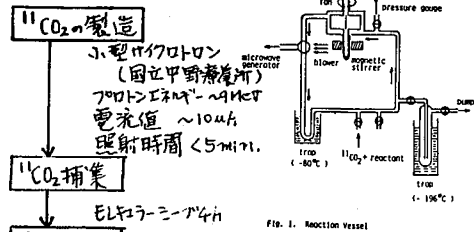 ¹¹CO₂の製造
小型サイクロトロン
(国立中野療養所)
プロトンエネルギー ~9MeV
電流値 ~10μA
照射時間 <5min.
¹¹CO₂捕集
モレキュラーシーブ4Å
fan
pressure gauge
microwave
generator
blower
magnetic
stirrer
pump
trap
(-80°C)
¹¹CO₂+ reactant
trap
(-196°C)
Fig. 1. Reaction Vessel